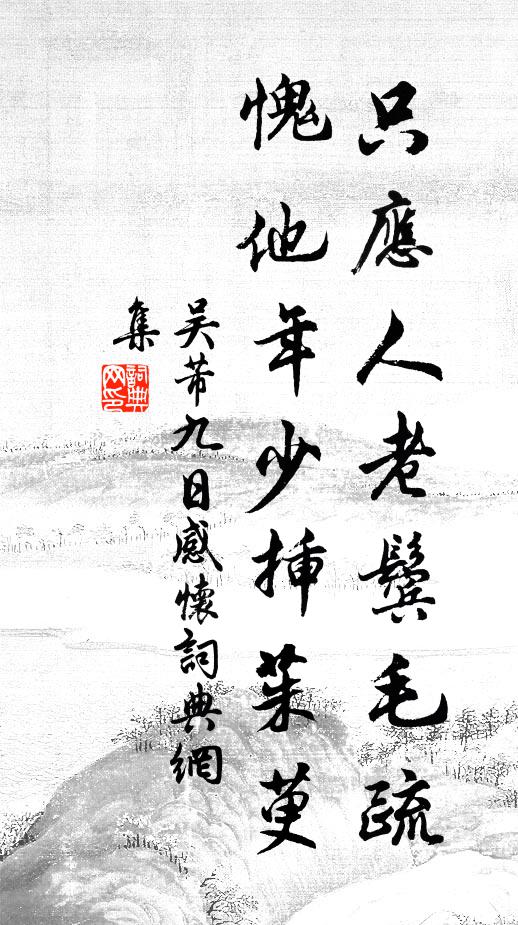 只應人老鬢毛疏
愧他年少插茱萸
吳芾九日感懷詞典網
集
詞典
网印